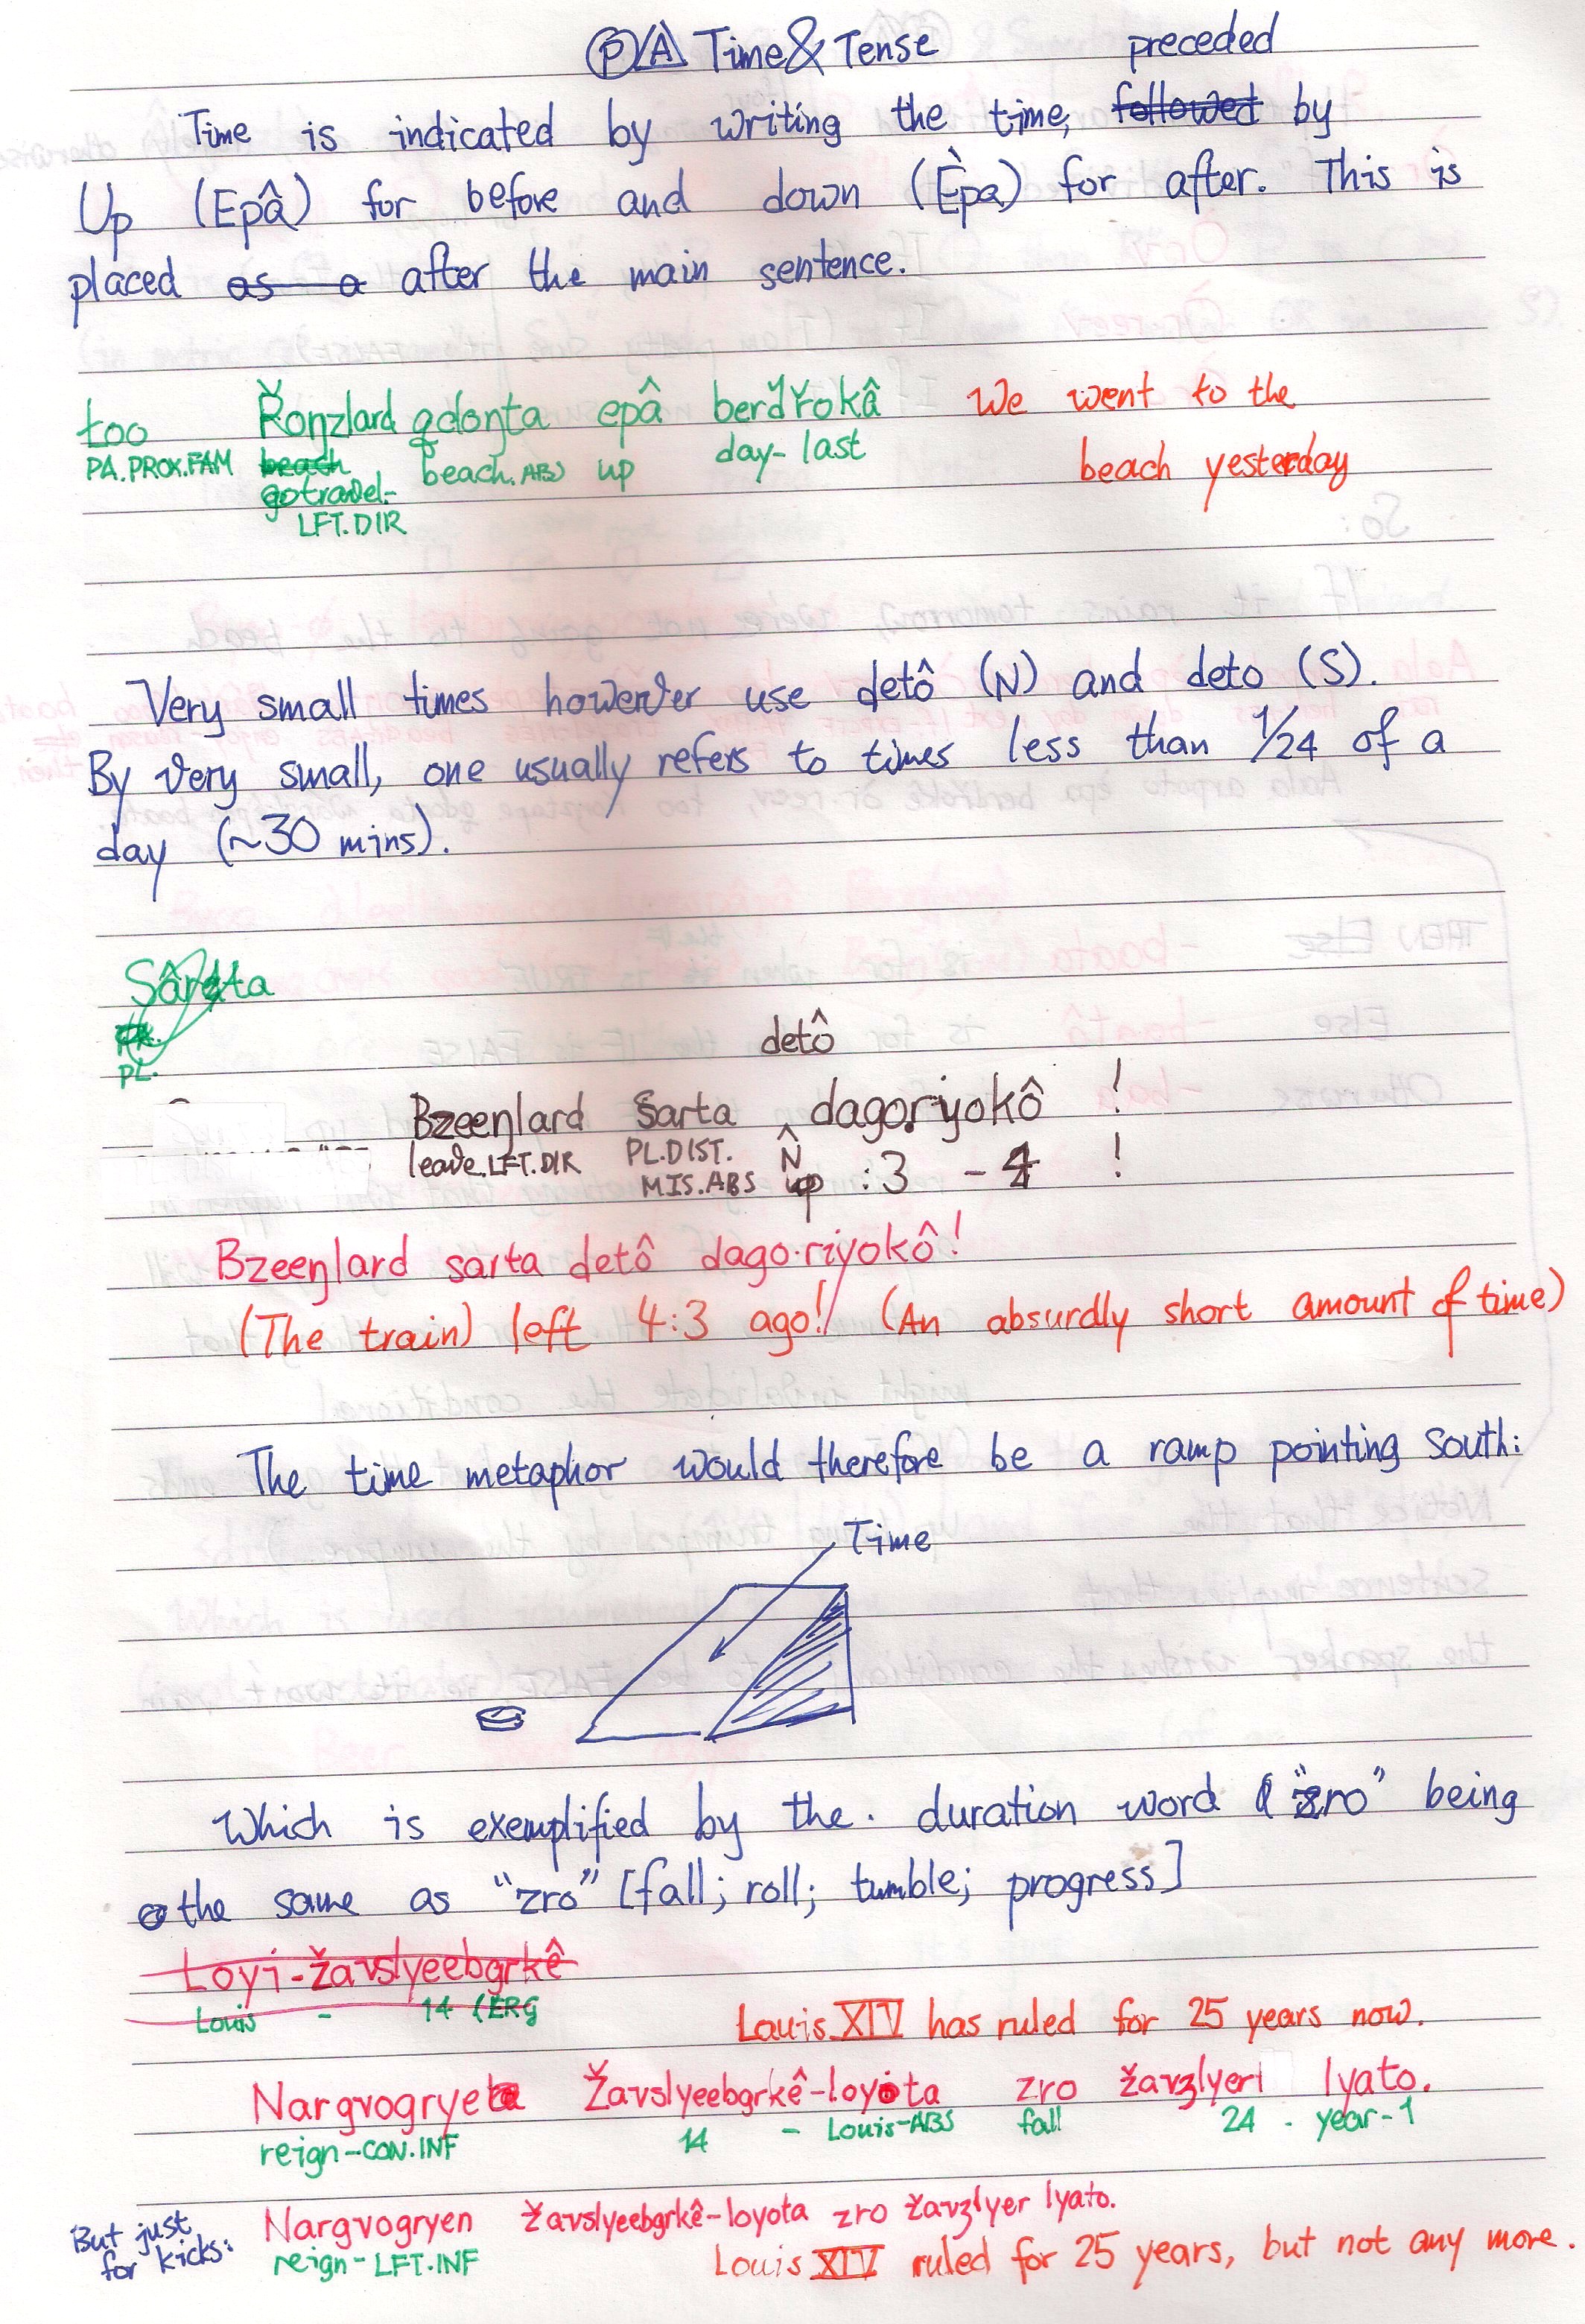 PA Time & Tense
preceded
Time is indicated by writing the time, followed by
Up (Epâ) for before and down (Èpa) for after. This is
placed as a after the main sentence.
too Řoŋzlard gdoŋta epâ berďřokâ We went to the
PA.PROX.FAM beach beach.ABS up day-last beach yesterday
go travel-
LFT.DIR
Very small times however use detô (N) and deto (S).
By very small, one usually refers to times less than 1/24 of a
day (~30 mins).
Sârta
PL.
detô
Bzeeŋlard sarta dago.riyokô !
leave.LFT.DIR PL.DIST. N :3 -4 !
MIS.ABS up
Bzeeŋlard sarta detô dago.riyokô!
(The train) left 4:3 ago! (An absurdly short amount of time)
The time metaphor would therefore be a ramp pointing south:
Time
Which is exemplified by the. duration word "zro" being
the same as "zro" [fall; roll; tumble; progress]
Loyi-žavslyeebgrkê
Louis - 14 (ERG
Louis XIV has ruled for 25 years now.
Nargvogryeta Žavslyeebgrkê-loyota zro žavzlyer lyato.
reign-CON.INF 14 - Louis-ABS fall 24 - year-1
But just
for kicks:
Nargvogryen žavslyeebgrkê-loyota zro žavzlyer lyato.
reign-LFT.INF Louis XIV ruled for 25 years, but not any more.